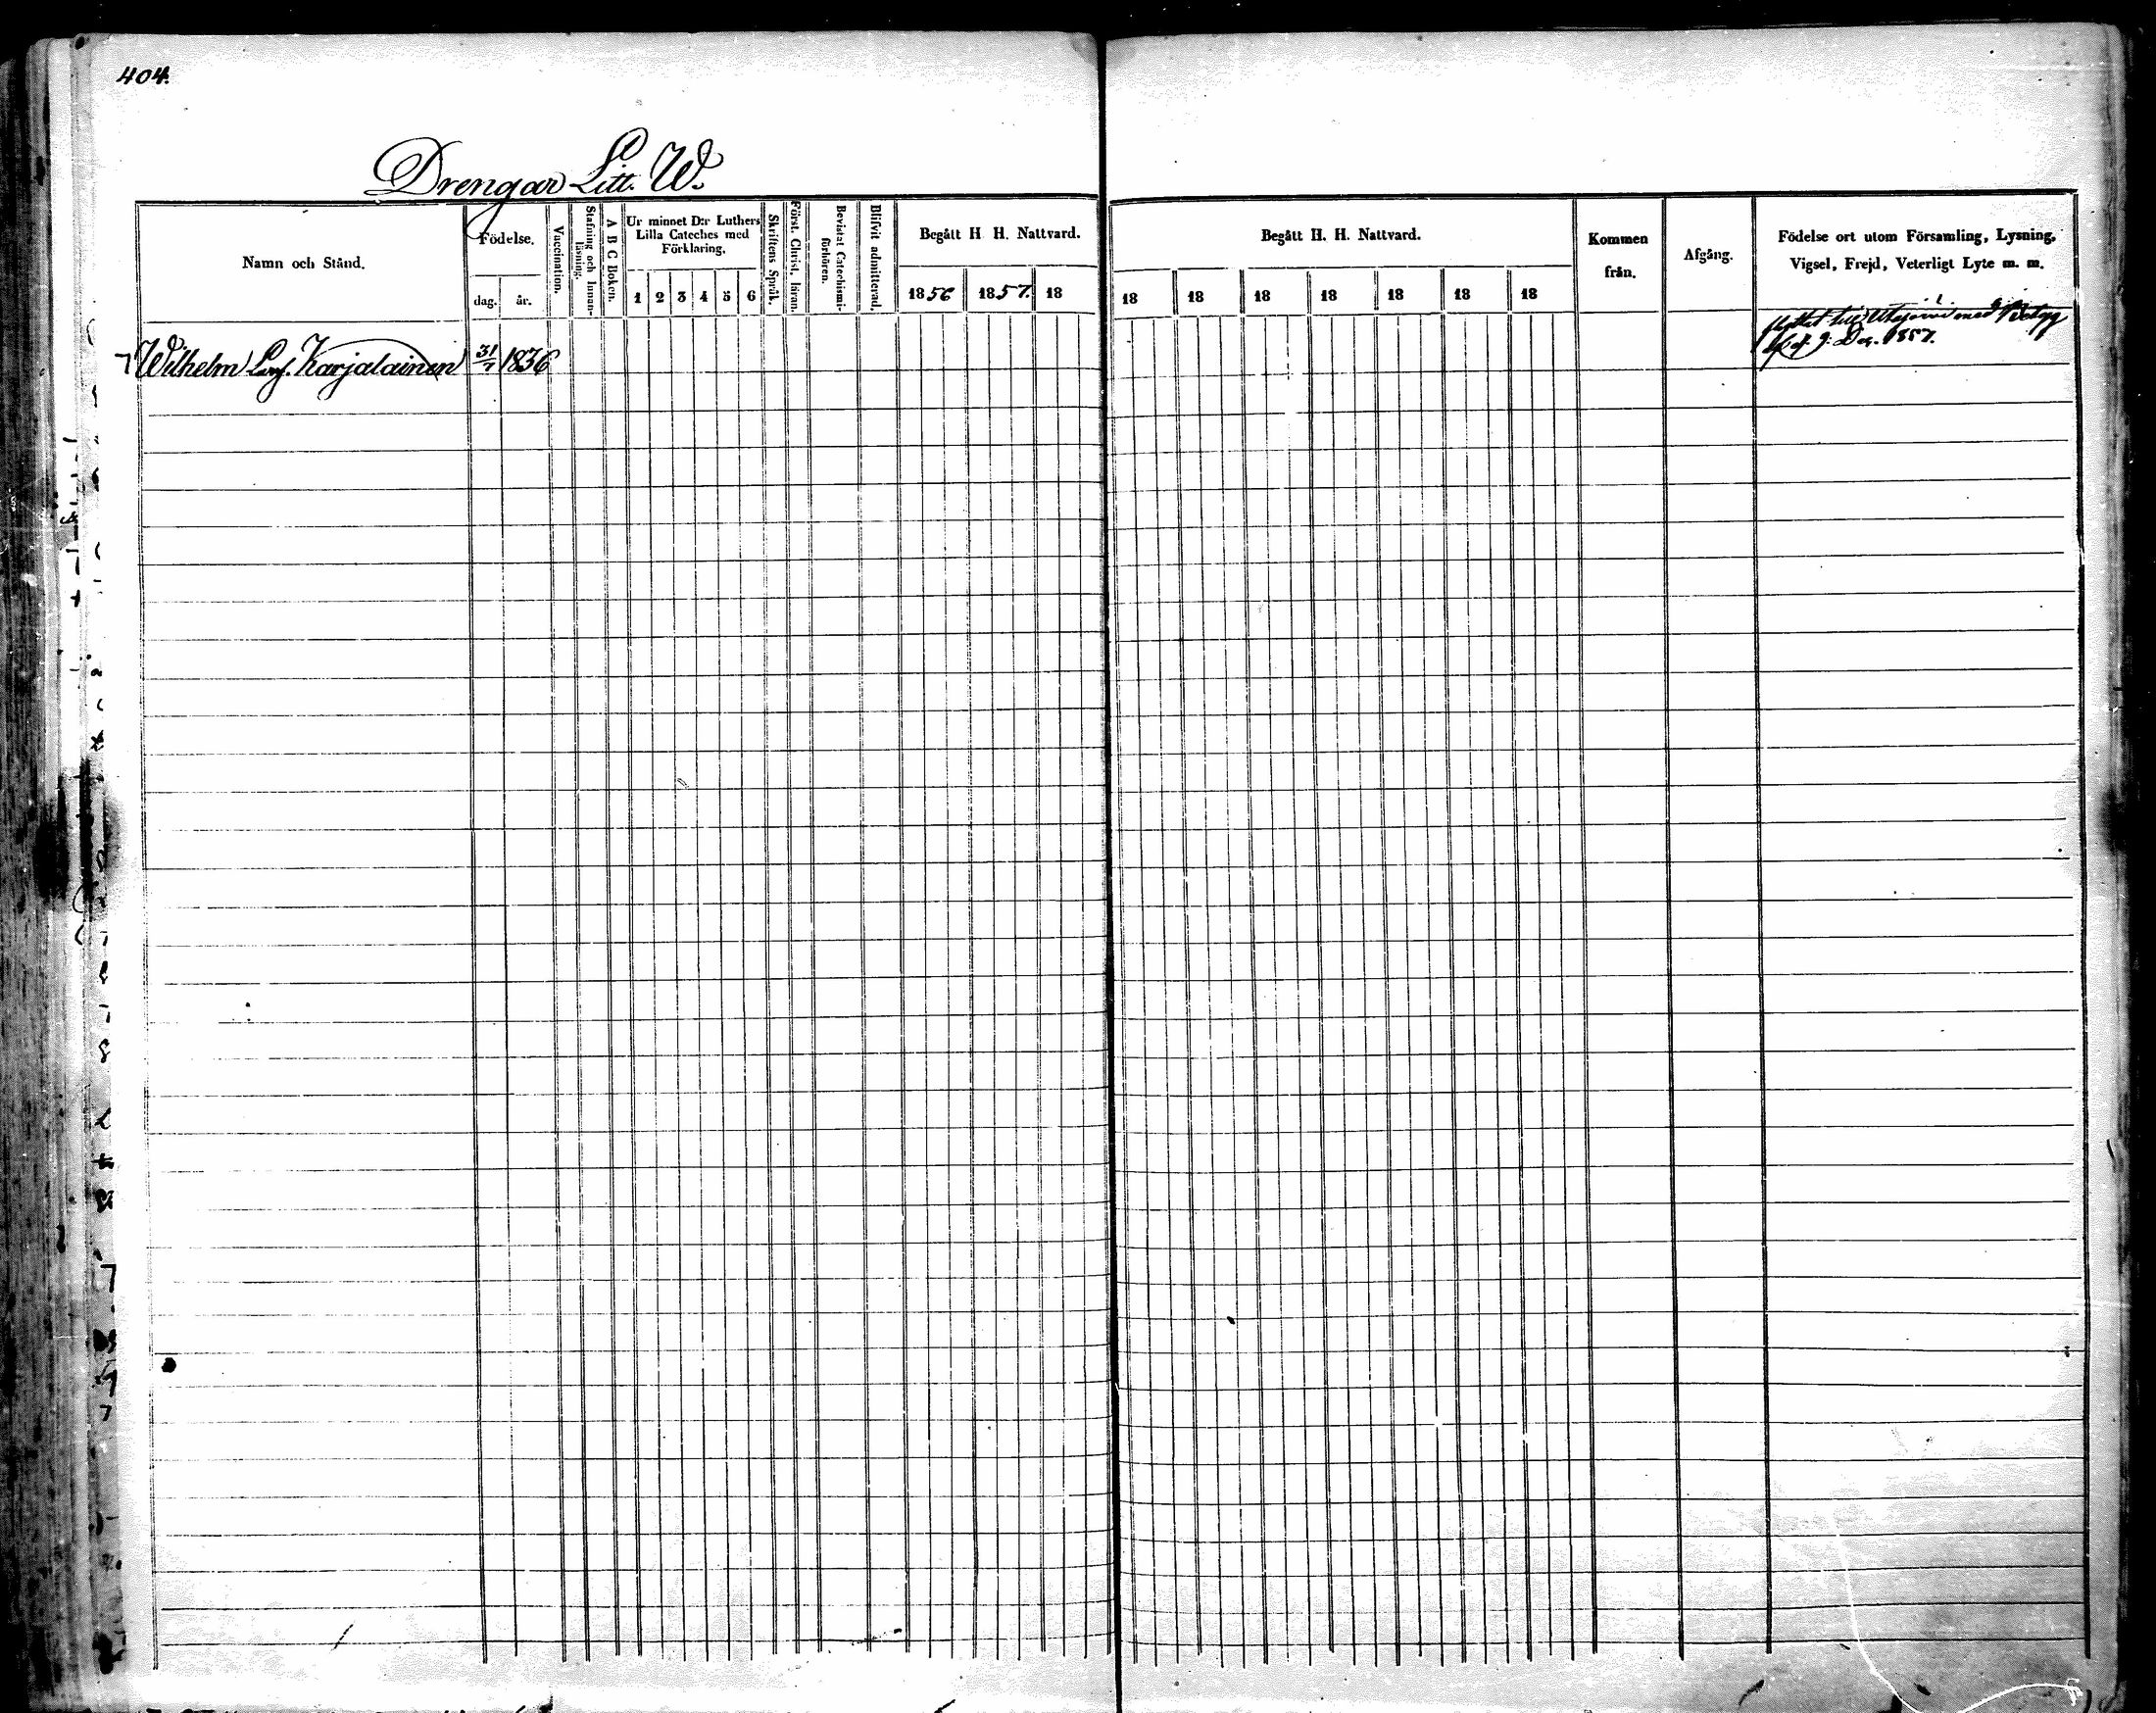 404.
Drengar Litt. W.
Namn och Stånd.
Födelse.
dag.
år.
Vaccination.
Stafning och Innan-
läsning.
A B C Boken.
Ur minnet D:r Luthers
Lilla Cateches med
Förklaring.
1 2 3 4 5 6
Skriftens Språk.
Först. Christ. läran.
Bevistat Catechismi-
förhören.
Blifvit admitterad.
Begått H. H. Nattvard.
1856 1857. 18
Begått H. H. Nattvard.
18 18 18 18 18 18 18
Kommen
från.
Afgång.
Födelse ort utom Församling, Lysning,
Vigsel, Frejd, Veterligt Lyte m. m.
Wilhelm Karjalainen 31/7 1836
flyttat till med Betyg
af d. 9. Dec. 1857.